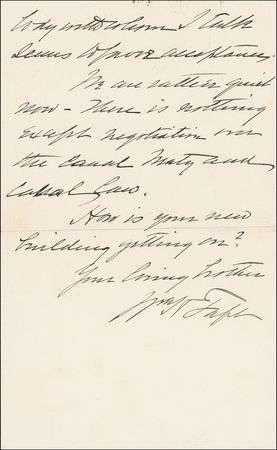 body with whom I talk
seems to favor acceptance.
We are rather quiet
now - There is nothing
except negotiation over
the Canal Treaty and
Canal Law.
How is your new
building getting on?
Your loving brother
Wm H Taft